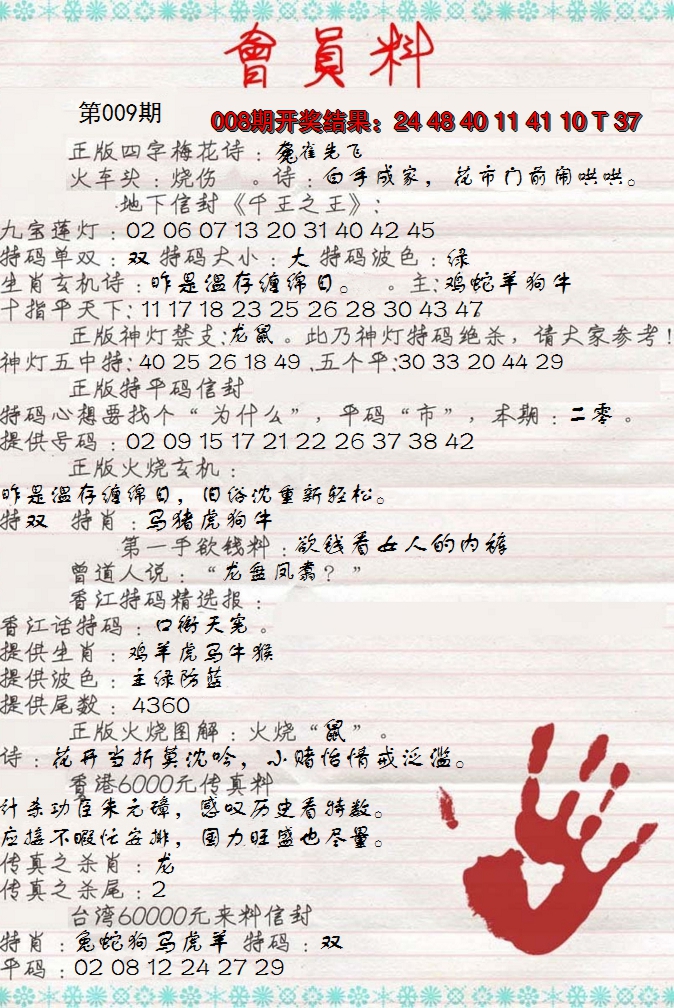 會員料
第009期
008期开奖结果：24 48 40 11 41 10 T 37
正版四字梅花诗：兔雀先飞
火车头：烧伤　。诗：白手成家，花市门前闹哄哄。
地下信封《千王之王》：
九宝莲灯：02 06 07 13 20 31 40 42 45
特码单双：双 特码大小：大 特码波色：绿
生肖玄机诗：昨是温存缠绵日。　。主：鸡蛇羊狗牛
十指平天下：11 17 18 23 25 26 28 30 43 47
正版神灯禁支：龙鼠。此乃神灯特码绝杀，请大家参考！
神灯五中特：40 25 26 18 49 .五个平：30 33 20 44 29
正版特平码信封
特码心想要找个“为什么”，平码“市”，本期：二零。
提供号码：02 09 15 17 21 22 26 37 38 42
正版火烧玄机：
昨是温存缠绵日，旧俗沈重新轻松。
特双　特肖：马猪虎狗牛
第一手欲钱料：欲钱看女人的内裤
曾道人说：“龙盘凤翥？”
香江特码精选报：
香江话特码：口衔天宪。
提供生肖：鸡羊虎马牛猴
提供波色：主绿防蓝
提供尾数：4360
正版火烧图解：火烧“鼠”。
诗：花开当折莫沈吟，小赌怡情戒泛滥。
香港6000元传真料
计杀功臣朱元璋，感叹历史看特数。
应接不暇忙安排，国力旺盛也尽量。
传真之杀肖：龙
传真之杀尾：2
台湾60000元来料信封
特肖：兔蛇狗马虎羊 特码：双
平码：02 08 12 24 27 29